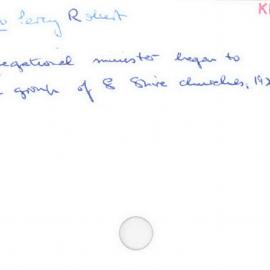 Percy Robert K
egational minister began to
group of S Shire churches, 192